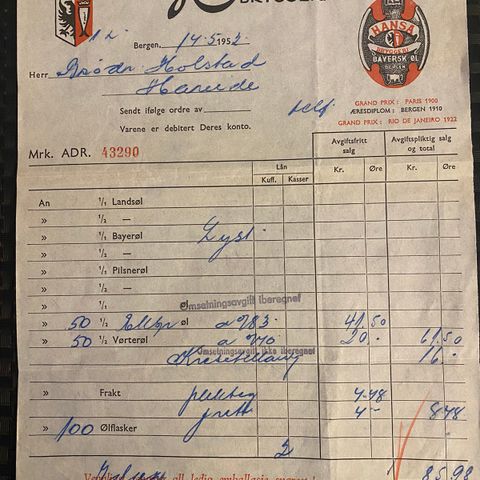 BRYGGERI
HANSA
BRYGGERI
BAYERSK ØL
BERGEN
Bergen, 14.5 1952
Herr Brødr Holstad
Hareide
Sendt ifølge ordre av
Varene er debitert Deres konto.
GRAND PRIX: PARIS 1900
ÆRESDIPLOM: BERGEN 1910
GRAND PRIX: RIO DE JANEIRO 1922
Mrk. ADR. 43290
Lån
Kuff. Kasser
Avgiftsfritt salg
Kr. Øre
Avgiftspliktig salg og total
Kr. Øre
An 1/1 Landsøl
» 1/2 —
» 1/1 Bayerøl
» 1/2 —
» 1/1 Pilsnerøl
» 1/2 —
» 1/1 øl
Omsetningsavgift iberegnet
» 50 1/2 øl a 0/83 41.50
» 50 1/2 Vørterøl a 0/40 20.- 61.50
Omsetningsavgift ikke iberegnet
16.-
» Frakt 4.48
frakt 4 — 8.48
» 100 Ølflasker
2
all ledig emballasje
85.98